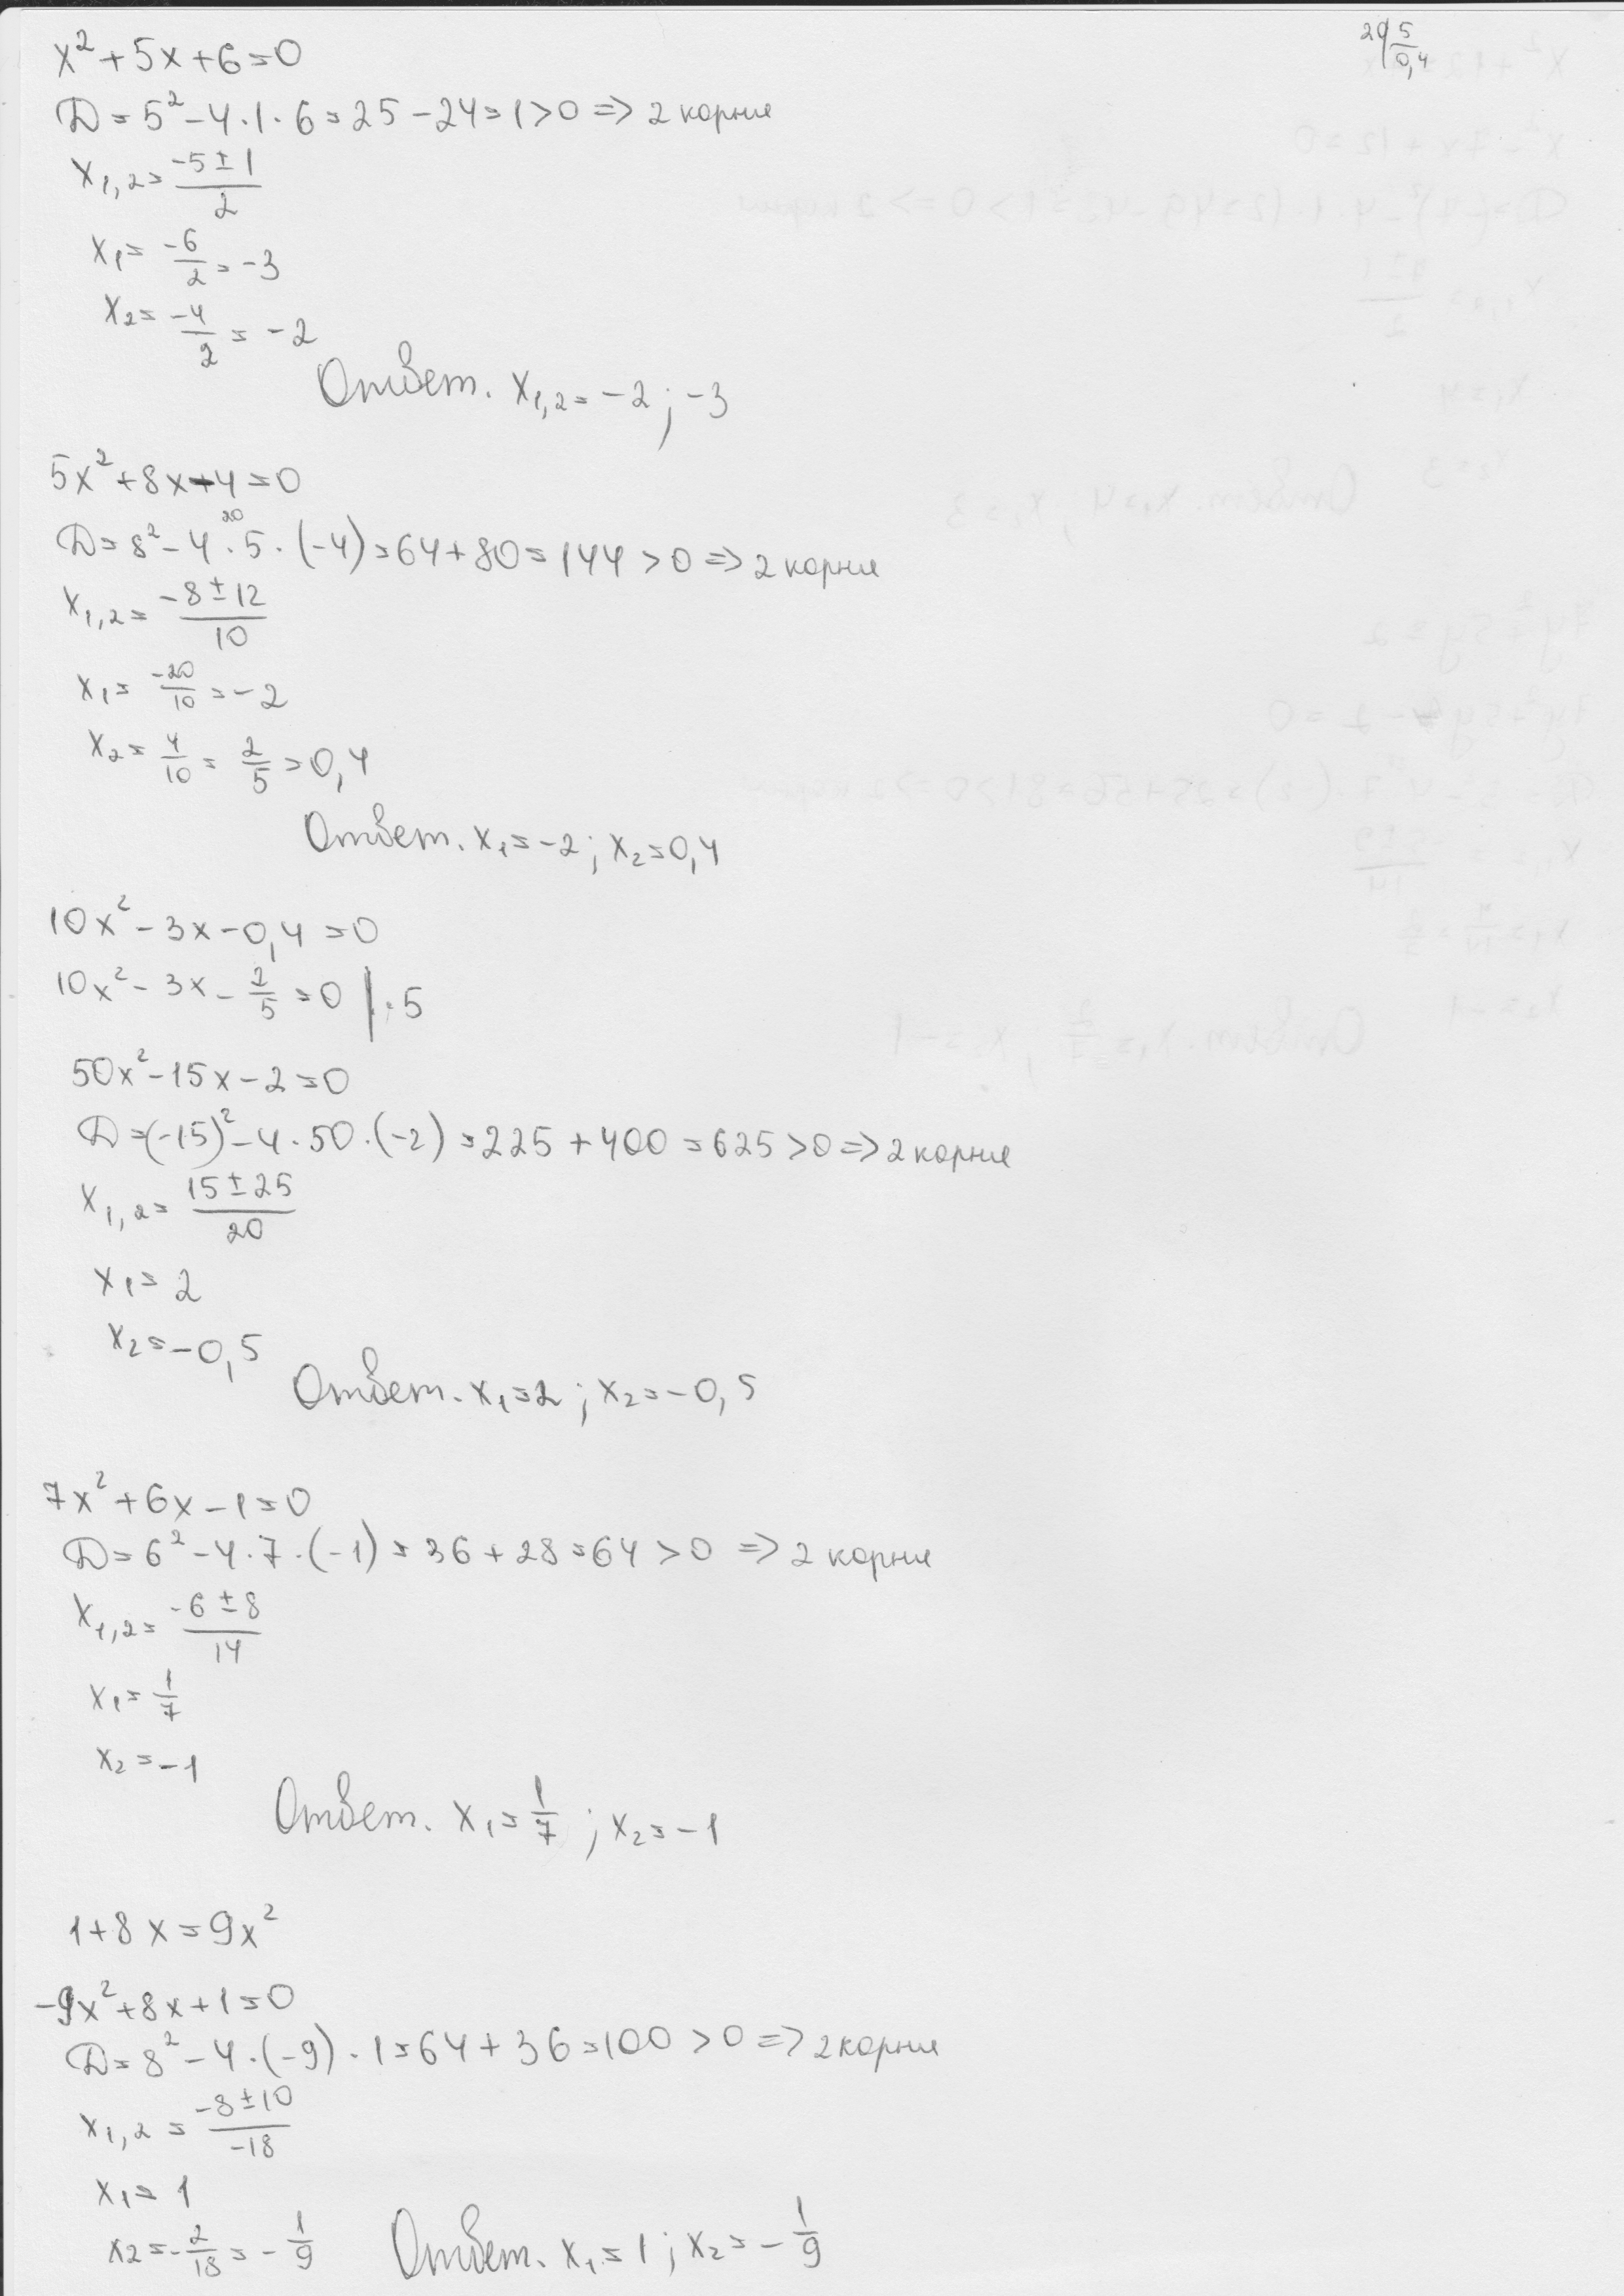 20 | 5
0,4
x² + 5x + 6 = 0
D = 5² - 4 · 1 · 6 = 25 - 24 = 1 > 0 => 2 корня
x₁,₂ = (-5 ± 1)/2
x₁ = -6/2 = -3
x₂ = -4/2 = -2
Ответ. x₁,₂ = -2 ; -3
5x² + 8x - 4 = 0
20
D = 8² - 4 · 5 · (-4) = 64 + 80 = 144 > 0 => 2 корня
x₁,₂ = (-8 ± 12)/10
x₁ = -20/10 = -2
x₂ = 4/10 = 2/5 = 0,4
Ответ. x₁ = -2 ; x₂ = 0,4
10x² - 3x - 0,4 = 0
10x² - 3x - 2/5 = 0 | · 5
50x² - 15x - 2 = 0
D = (-15)² - 4 · 50 · (-2) = 225 + 400 = 625 > 0 => 2 корня
x₁,₂ = (15 ± 25)/20
x₁ = 2
x₂ = -0,5
Ответ. x₁ = 2 ; x₂ = -0,5
7x² + 6x - 1 = 0
D = 6² - 4 · 7 · (-1) = 36 + 28 = 64 > 0 => 2 корня
x₁,₂ = (-6 ± 8)/14
x₁ = 1/7
x₂ = -1
Ответ. x₁ = 1/7 ; x₂ = -1
1 + 8x = 9x²
-9x² + 8x + 1 = 0
D = 8² - 4 · (-9) · 1 = 64 + 36 = 100 > 0 => 2 корня
x₁,₂ = (-8 ± 10)/-18
x₁ = 1
x₂ = -2/18 = -1/9 Ответ. x₁ = 1 ; x₂ = -1/9